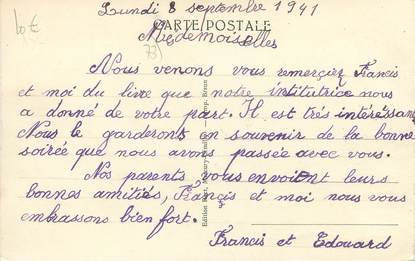 Lundi 8 septembre 1941
CARTE POSTALE
10 €
Mesdemoiselles
Nous venons vous remerçier Francis
et moi du livre que notre institutrice nous
a donné de votre part. Il est très intéréssant
Nous le garderons en souvenir de la bonne
soirée que nous avons passée avec vous.
Nos parents vous envoient leurs
bonnes amitiés, Françis et moi nous vous
embrassons bien fort.
Francis et Edouard